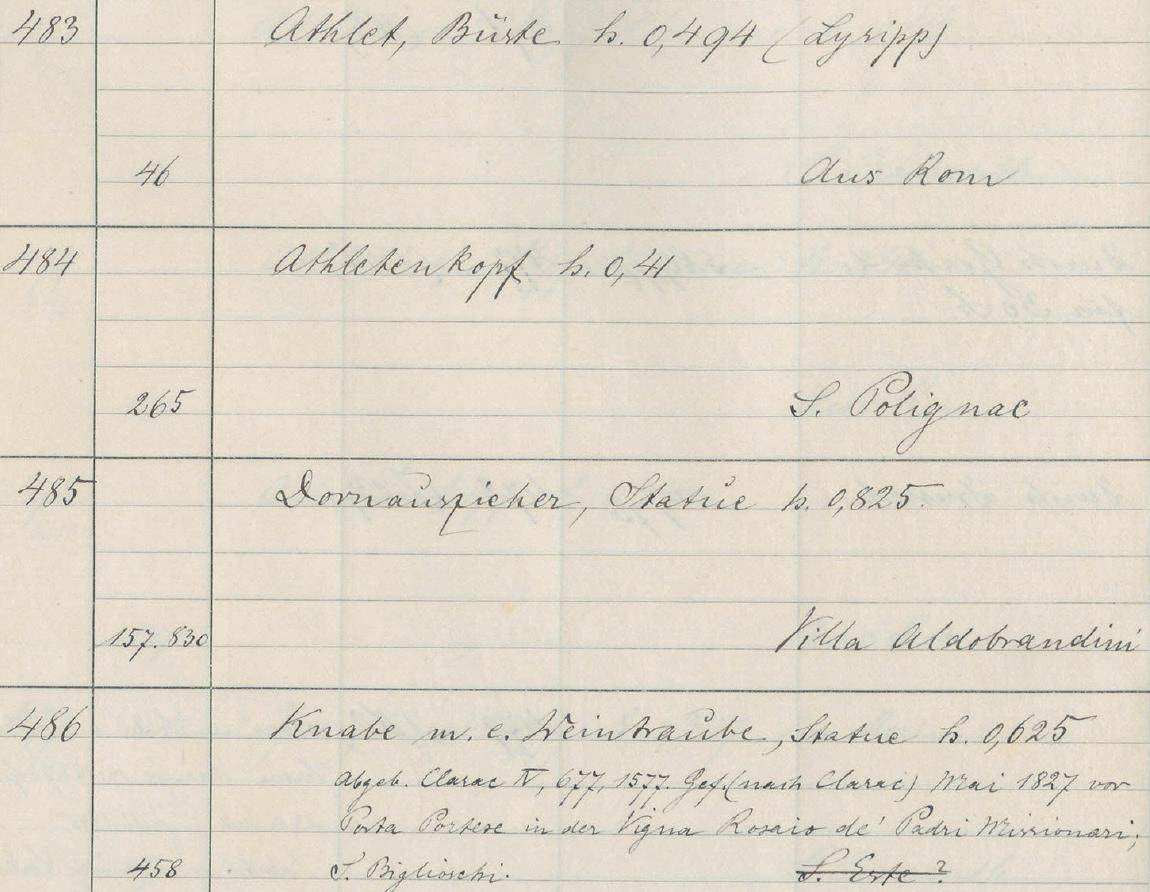 483 Athlet, Büste h. 0,494 (Lysipp)
46 Aus Rom
484 Athletenkopf h. 0,41
265 S. Polignac
485 Dornauszieher, Statue h. 0,825.
157. 830 Villa Aldobrandini
486 Knabe m. e. Weintraube, Statue h. 0,625
Abgeb. Clarac IV, 677, 1577. Gef. (nach Clarac) Mai 1827 vor
Porta Portese in der Vigna Rosaio de' Padri Missionari;
458 S. Biglioschi. S. Este?